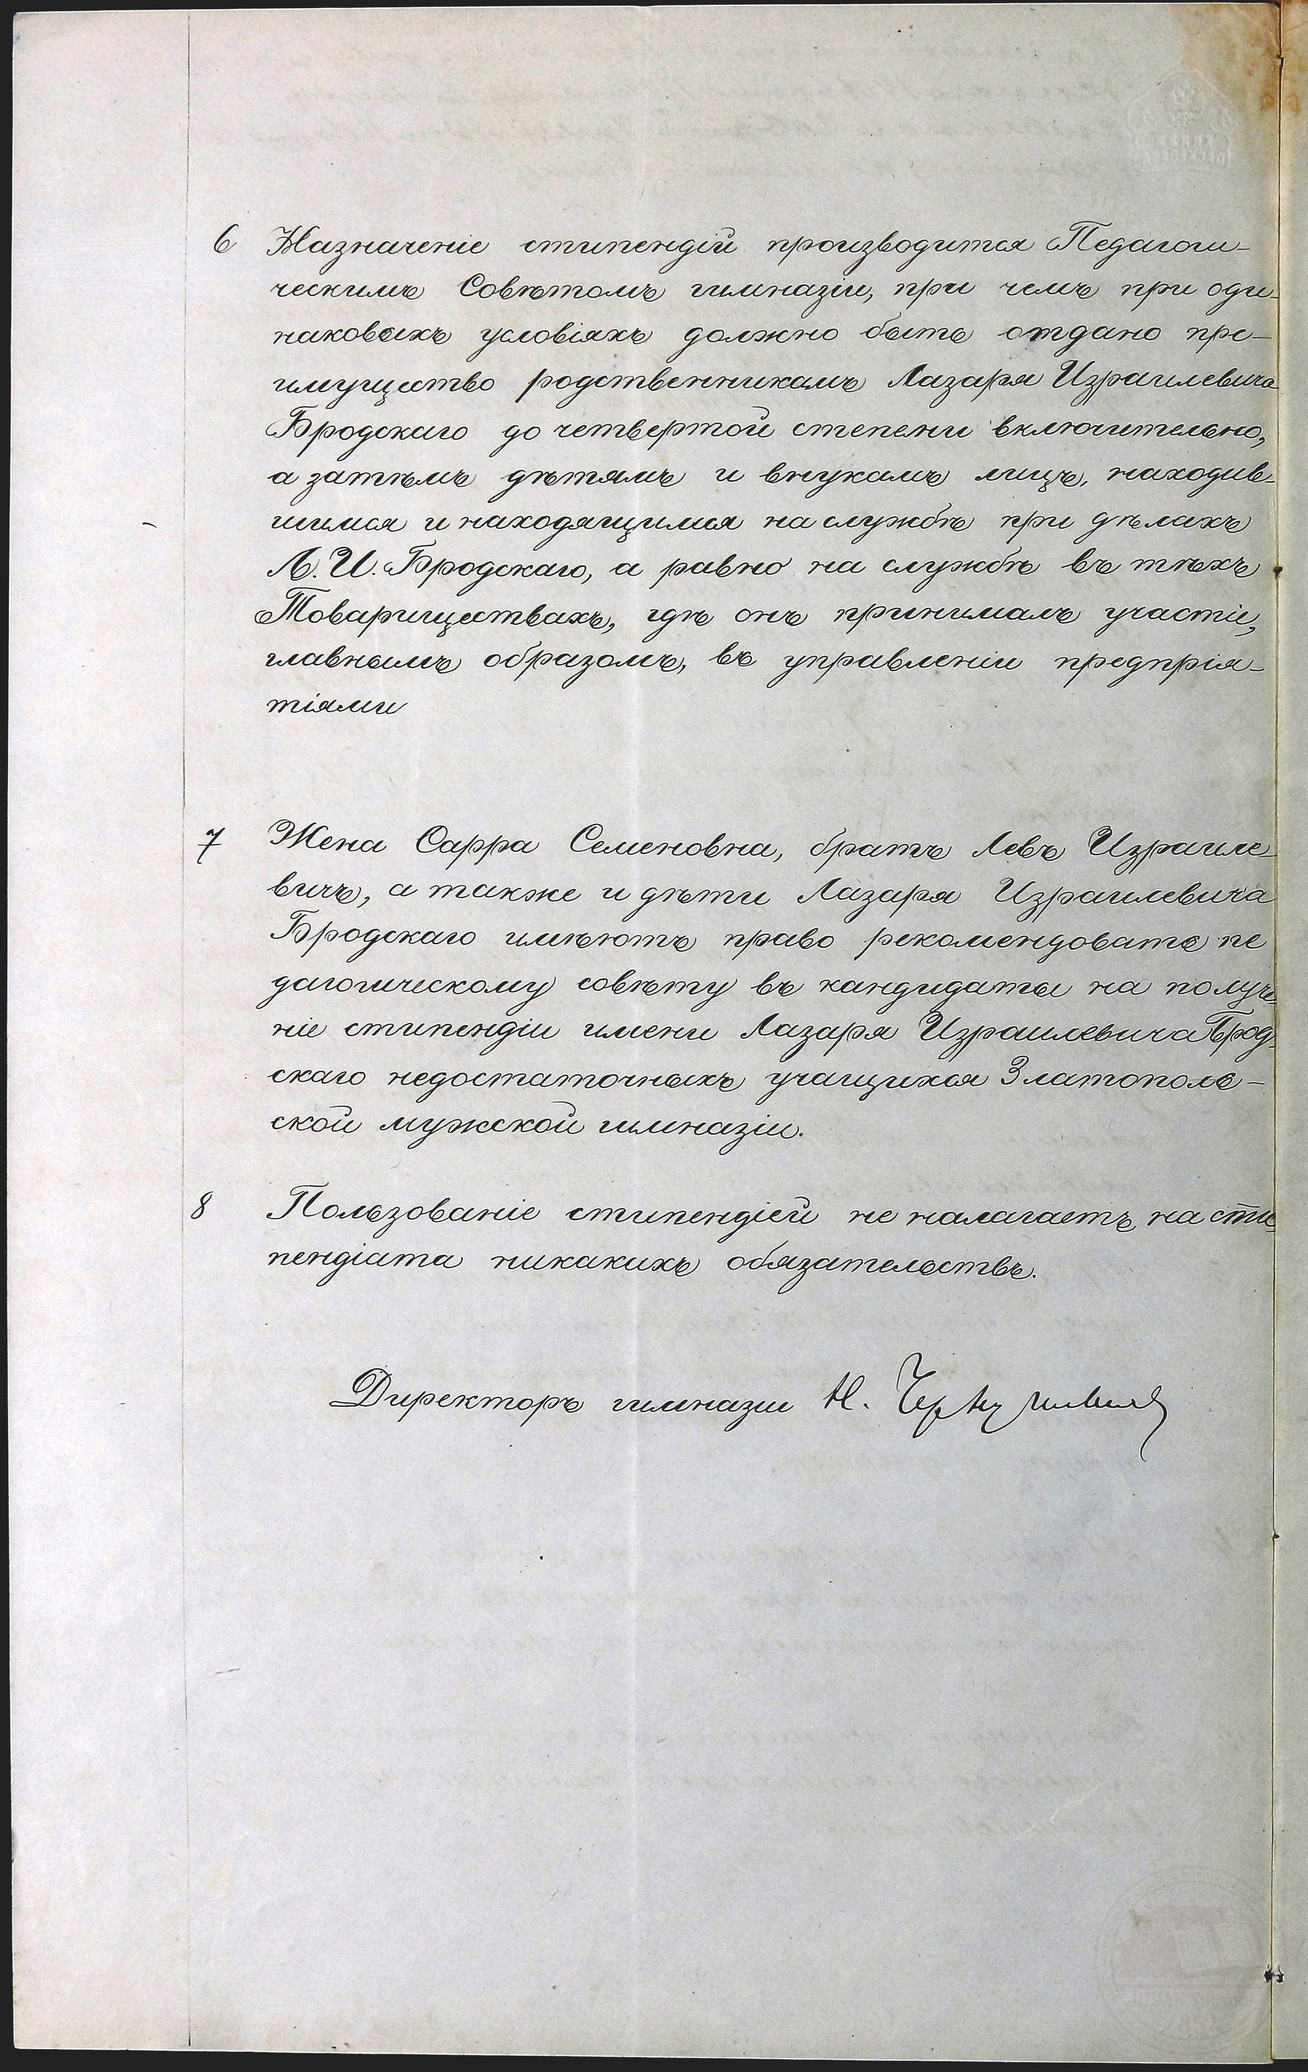 6 Назначеніе стипендій производится Педагоги-
ческимъ Совѣтомъ гимназіи, при чемъ при оди-
наковыхъ условіяхъ должно быть отдано пре-
имущество родственникамъ Лазаря Израилевича
Бродскаго до четвертой степени включительно,
а затѣмъ дѣтямъ и внукамъ лицъ, находив-
шимся и находящимся на службѣ при дѣлахъ
Л. И. Бродскаго, а равно на службѣ въ тѣхъ
Товариществахъ, гдѣ онъ принималъ участіе,
главнымъ образомъ, въ управленіи предпрія-
тіями
7 Жена Сарра Семеновна, братъ Левъ Израиле-
вичъ, а также и дѣти Лазаря Израилевича
Бродскаго имѣютъ право рекомендовать пе
дагогическому совѣту въ кандидаты на получе-
ніе стипендіи имени Лазаря Израилевича Брод-
скаго недостаточныхъ учащихся Златополь-
ской мужской гимназіи.
8 Пользованіе стипендіей не налагаетъ на сти-
пендіата никакихъ обязательствъ.
Директоръ гимназіи Н.